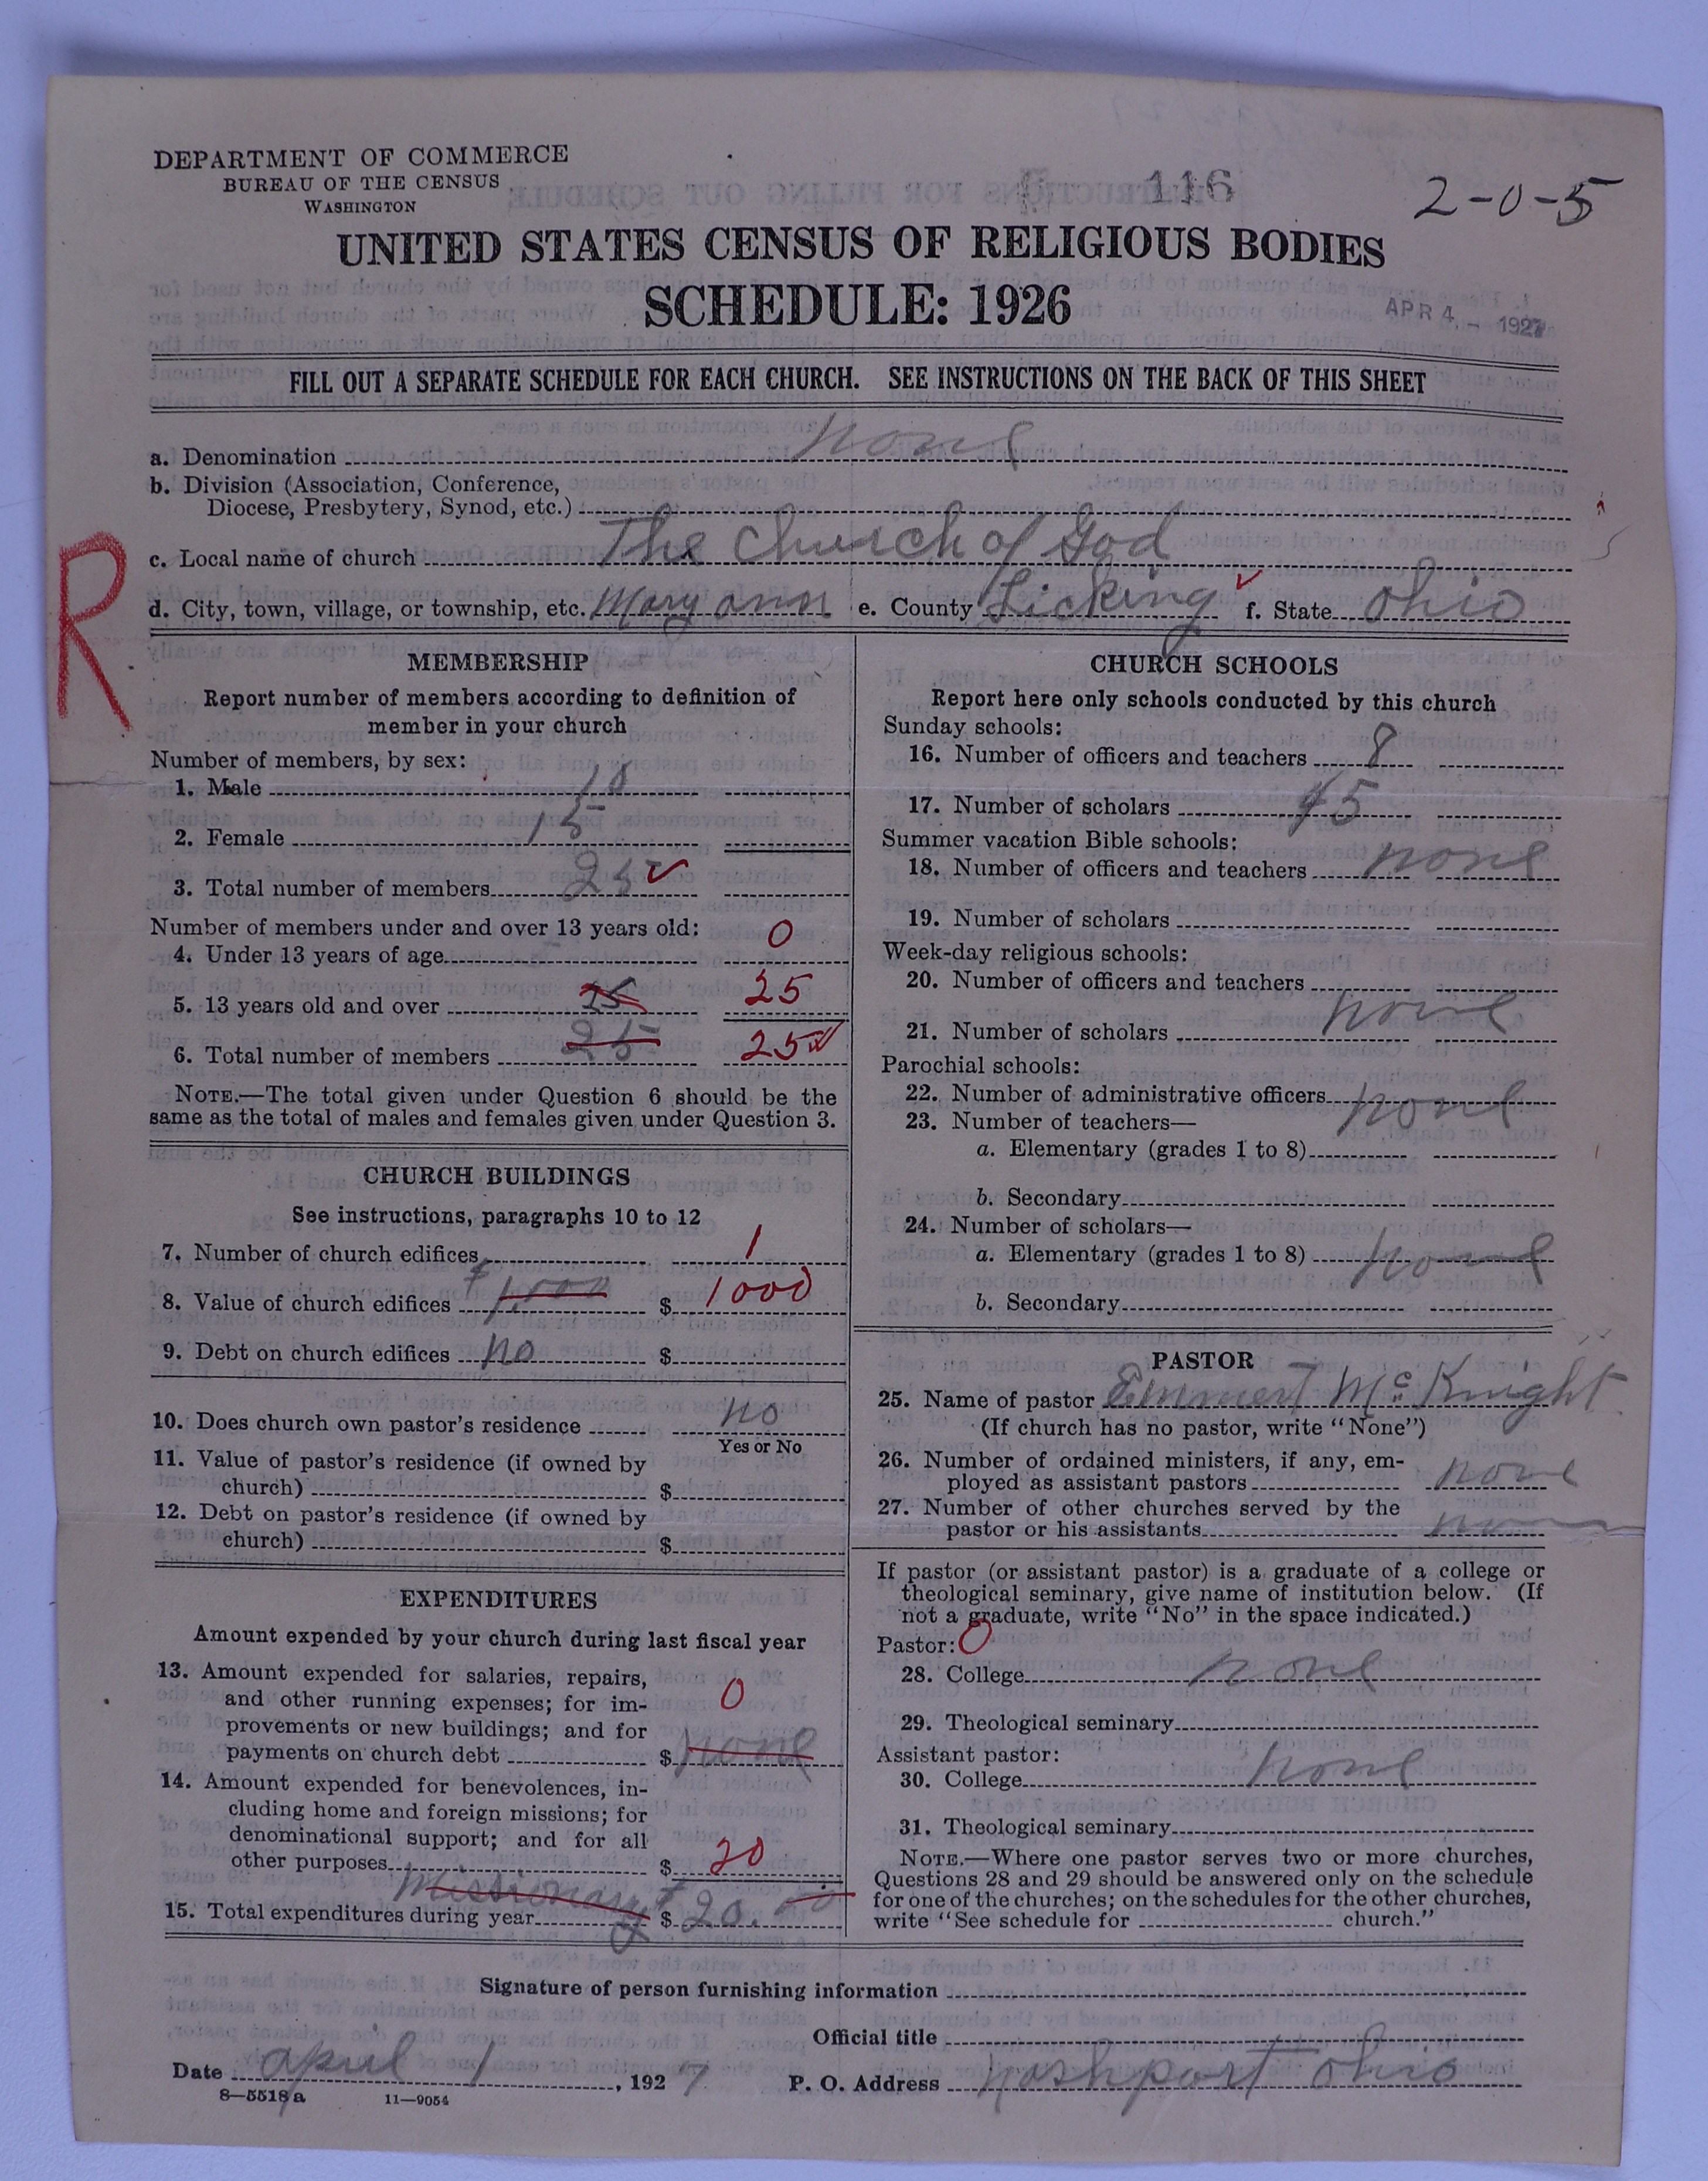 DEPARTMENT OF COMMERCE
BUREAU OF THE CENSUS
WASHINGTON
116
2-0-5
UNITED STATES CENSUS OF RELIGIOUS BODIES
SCHEDULE: 1926
APR 4 - 1927
FILL OUT A SEPARATE SCHEDULE FOR EACH CHURCH. SEE INSTRUCTIONS ON THE BACK OF THIS SHEET
R
a. Denomination none
b. Division (Association, Conference,
Diocese, Presbytery, Synod, etc.)
c. Local name of church The Church of God
d. City, town, village, or township, etc. Mary ann e. County Licking f. State Ohio
MEMBERSHIP
Report number of members according to definition of
member in your church
Number of members, by sex:
1. Male 10
2. Female 15
3. Total number of members 25
Number of members under and over 13 years old:
4. Under 13 years of age 0
5. 13 years old and over 25 25
6. Total number of members 25 25
NOTE.—The total given under Question 6 should be the
same as the total of males and females given under Question 3.
CHURCH BUILDINGS
See instructions, paragraphs 10 to 12
7. Number of church edifices 1
8. Value of church edifices $1,000 $ 1000
9. Debt on church edifices no $
10. Does church own pastor's residence no
Yes or No
11. Value of pastor's residence (if owned by
church) $
12. Debt on pastor's residence (if owned by
church) $
EXPENDITURES
Amount expended by your church during last fiscal year
13. Amount expended for salaries, repairs,
and other running expenses; for im-
provements or new buildings; and for
payments on church debt $ none 0
14. Amount expended for benevolences, in-
cluding home and foreign missions; for
denominational support; and for all
other purposes $ 20
Missionary
15. Total expenditures during year $ 20.00
CHURCH SCHOOLS
Report here only schools conducted by this church
Sunday schools:
16. Number of officers and teachers 8
17. Number of scholars 45
Summer vacation Bible schools:
18. Number of officers and teachers none
19. Number of scholars
Week-day religious schools:
20. Number of officers and teachers
21. Number of scholars none
Parochial schools:
22. Number of administrative officers none
23. Number of teachers—
a. Elementary (grades 1 to 8)
b. Secondary
24. Number of scholars—
a. Elementary (grades 1 to 8) none
b. Secondary
PASTOR
25. Name of pastor Emmert McKnight
(If church has no pastor, write "None")
26. Number of ordained ministers, if any, em-
ployed as assistant pastors none
27. Number of other churches served by the
pastor or his assistants none
If pastor (or assistant pastor) is a graduate of a college or
theological seminary, give name of institution below. (If
not a graduate, write "No" in the space indicated.)
Pastor: 0
28. College none
29. Theological seminary
Assistant pastor:
30. College none
31. Theological seminary
NOTE.—Where one pastor serves two or more churches,
Questions 28 and 29 should be answered only on the schedule
for one of the churches; on the schedules for the other churches,
write "See schedule for church."
Signature of person furnishing information
Official title
Date april 1, 1927 P. O. Address Nashport Ohio
8—5518a 11—9054